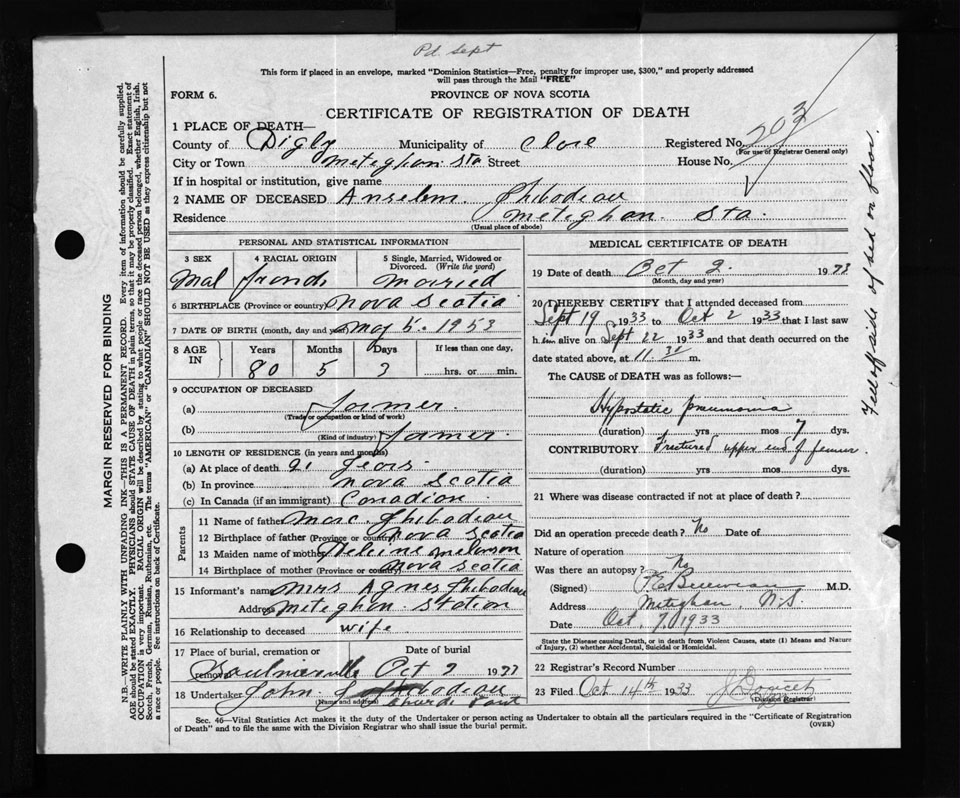 Pd. Sept
This form if placed in an envelope, marked "Dominion Statistics—Free, penalty for improper use, $300," and properly addressed
will pass through the Mail "FREE"
FORM 6.
PROVINCE OF NOVA SCOTIA
CERTIFICATE OF REGISTRATION OF DEATH
203
1 PLACE OF DEATH—
County of Digby Municipality of Clare Registered No.
(For use of Registrar General only)
City or Town Meteghan Sta Street House No.
If in hospital or institution, give name
2 NAME OF DECEASED Anselm Thibodeau
Residence Meteghan Sta.
(Usual place of abode)
PERSONAL AND STATISTICAL INFORMATION
3 SEX 4 RACIAL ORIGIN 5 Single, Married, Widowed or
Divorced. (Write the word)
Mal french Married
6 BIRTHPLACE (Province or country) Nova Scotia
7 DATE OF BIRTH (month, day and year) May 5. 1953
8 AGE IN Years Months Days If less than one day,
80 5 3 hrs. or min.
9 OCCUPATION OF DECEASED
(a) farmer.
(Trade or occupation or kind of work)
(b) farmer.
(Kind of industry)
10 LENGTH OF RESIDENCE (in years and months)
(a) At place of death 21 years
(b) In province Nova Scotia
(c) In Canada (if an immigrant) Canadian
Parents
11 Name of father Marc. Thibodeau
12 Birthplace of father (Province or country) Nova Scotia
13 Maiden name of mother Melanson
14 Birthplace of mother (Province or country) Nova Scotia
15 Informant's name Mrs Agnes Thibodeau
Address Meteghan Station
16 Relationship to deceased wife
17 Place of burial, cremation or Date of burial
removal Saulnierville Oct 2 19
18 Undertaker John Thibodeau
(Name and address) Church Point
MEDICAL CERTIFICATE OF DEATH
19 Date of death Oct 2. 19
(Month, day and year)
20 I HEREBY CERTIFY that I attended deceased from
Sept 19 1933 to Oct 2 1933 that I last saw
h im alive on Sept 22 1933 and that death occurred on the
date stated above, at 11.30 m.
The CAUSE of DEATH was as follows:—
Hypostatic pneumonia
(duration) yrs mos 7 dys.
CONTRIBUTORY Fractured upper end of femur
(duration) yrs. mos. dys.
21 Where was disease contracted if not at place of death?
Did an operation precede death? No Date of
Nature of operation
Was there an autopsy? No
(Signed) M.D.
Address Meteghan, N.S.
Date Oct. 7, 1933
State the Disease causing Death, or in death from Violent Causes, state (1) Means and Nature
of Injury, (2) whether Accidental, Suicidal or Homicidal.
22 Registrar's Record Number
23 Filed Oct 14th 1933
Division Registrar
Sec. 46—Vital Statistics Act makes it the duty of the Undertaker or person acting as Undertaker to obtain all the particulars required in the "Certificate of Registration
of Death" and to file the same with the Division Registrar who shall issue the burial permit.
(OVER)
Fell off side of bed on floor.
MARGIN RESERVED FOR BINDING
N.B.—WRITE PLAINLY WITH UNFADING INK—THIS IS A PERMANENT RECORD. Every item of information should be carefully supplied.
AGE should be stated EXACTLY. PHYSICIANS should STATE CAUSE OF DEATH in plain terms, so that it may be properly classified. Exact statement of
OCCUPATION is very important. RACIAL ORIGIN will be described by stating to what people or race the deceased person belonged, whether English, Irish,
Scotch, French, German, Russian, Ruthenian, etc. The terms "AMERICAN" or "CANADIAN" SHOULD NOT BE USED as they express citizenship but not
a race or people. See instructions on back of Certificate.